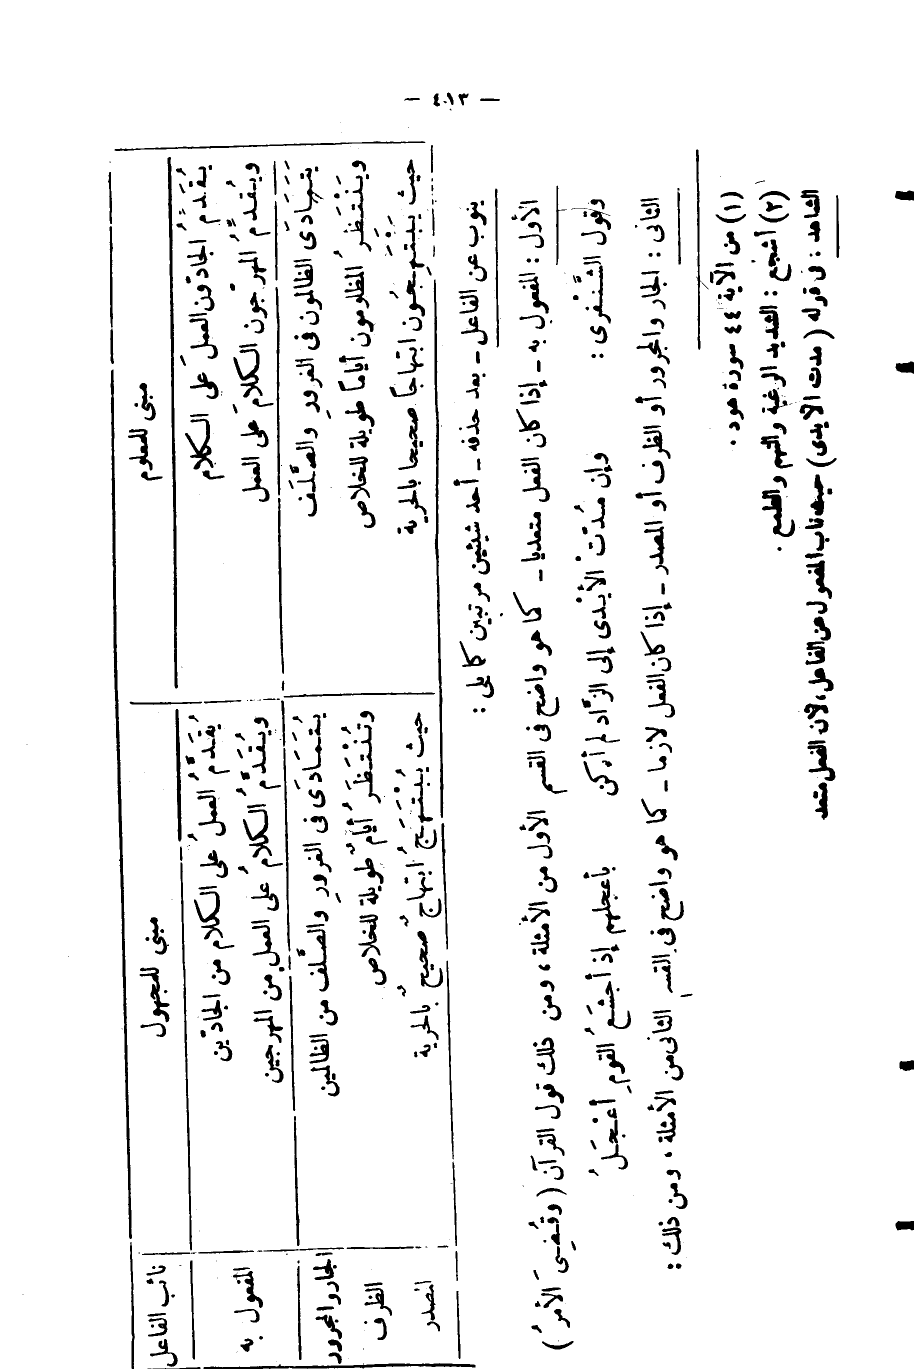 — ٤٠١٣ —
مبنى للمعلوم | مبنى للمجهول | نائب الفاعل
يُقَدِّمُ الجادّون العملَ على الكلام | يُقَدَّمُ العملُ على الكلام من الجادّين | المفعول به
ويُقدِّمُ المهرّجون الكلامَ على العمل | ويُقدَّمُ الكلامُ على العمل من المهرجين
يَتَمَادَى الظالمون فى الغرورِ والصَّلَف | يُتَمَادَى فى الغرورِ والصَّلف من الظالمين | الجار والمجرور
ويَنْتَظِرُ المظلومون أياماً طويلة للخلاص | وتُنْتَظَرُ أيامٌ طويلة للخلاص | الظرف
حيث يَبْتَهِجُون ابتهاجاً صحيحا بالحرية | حيث يُبْتَهَجُ ابتهاجٌ صحيحٌ بالحرية | المصدر
ينوب عن الفاعل ـ بعد حذفه ـ أحد شيئين مرتبين كما يلى :
الأول : المفعول به ـ إذا كان الفعل متعديا ـ كما هو واضح فى القسم الأول من الأمثلة ، ومن ذلك قول القرآن ( وقُضِىَ الأمرُ )
وقول الشَّنْفرى :
وإن مُدَّتْ الأيْدى إلى الزَّاد لم أكن بأعجلهم إذ أجْشَعُ القومِ أعْجَلُ
الثانى : الجار والمجرور أو الظرف أو المصدر ـ إذا كان الفعل لازما ـ كما هو واضح فى القسم الثانى من الأمثلة ، ومن ذلك :
(١) من الآية ٤٤ سورة هود .
(٢) أشجع : الشديد الرغبة والنهم والطمع .
الشاهد : فى قوله ( مدت الأيدى ) حيث ناب المفعول عن الفاعل ، لأن الفعل متعد